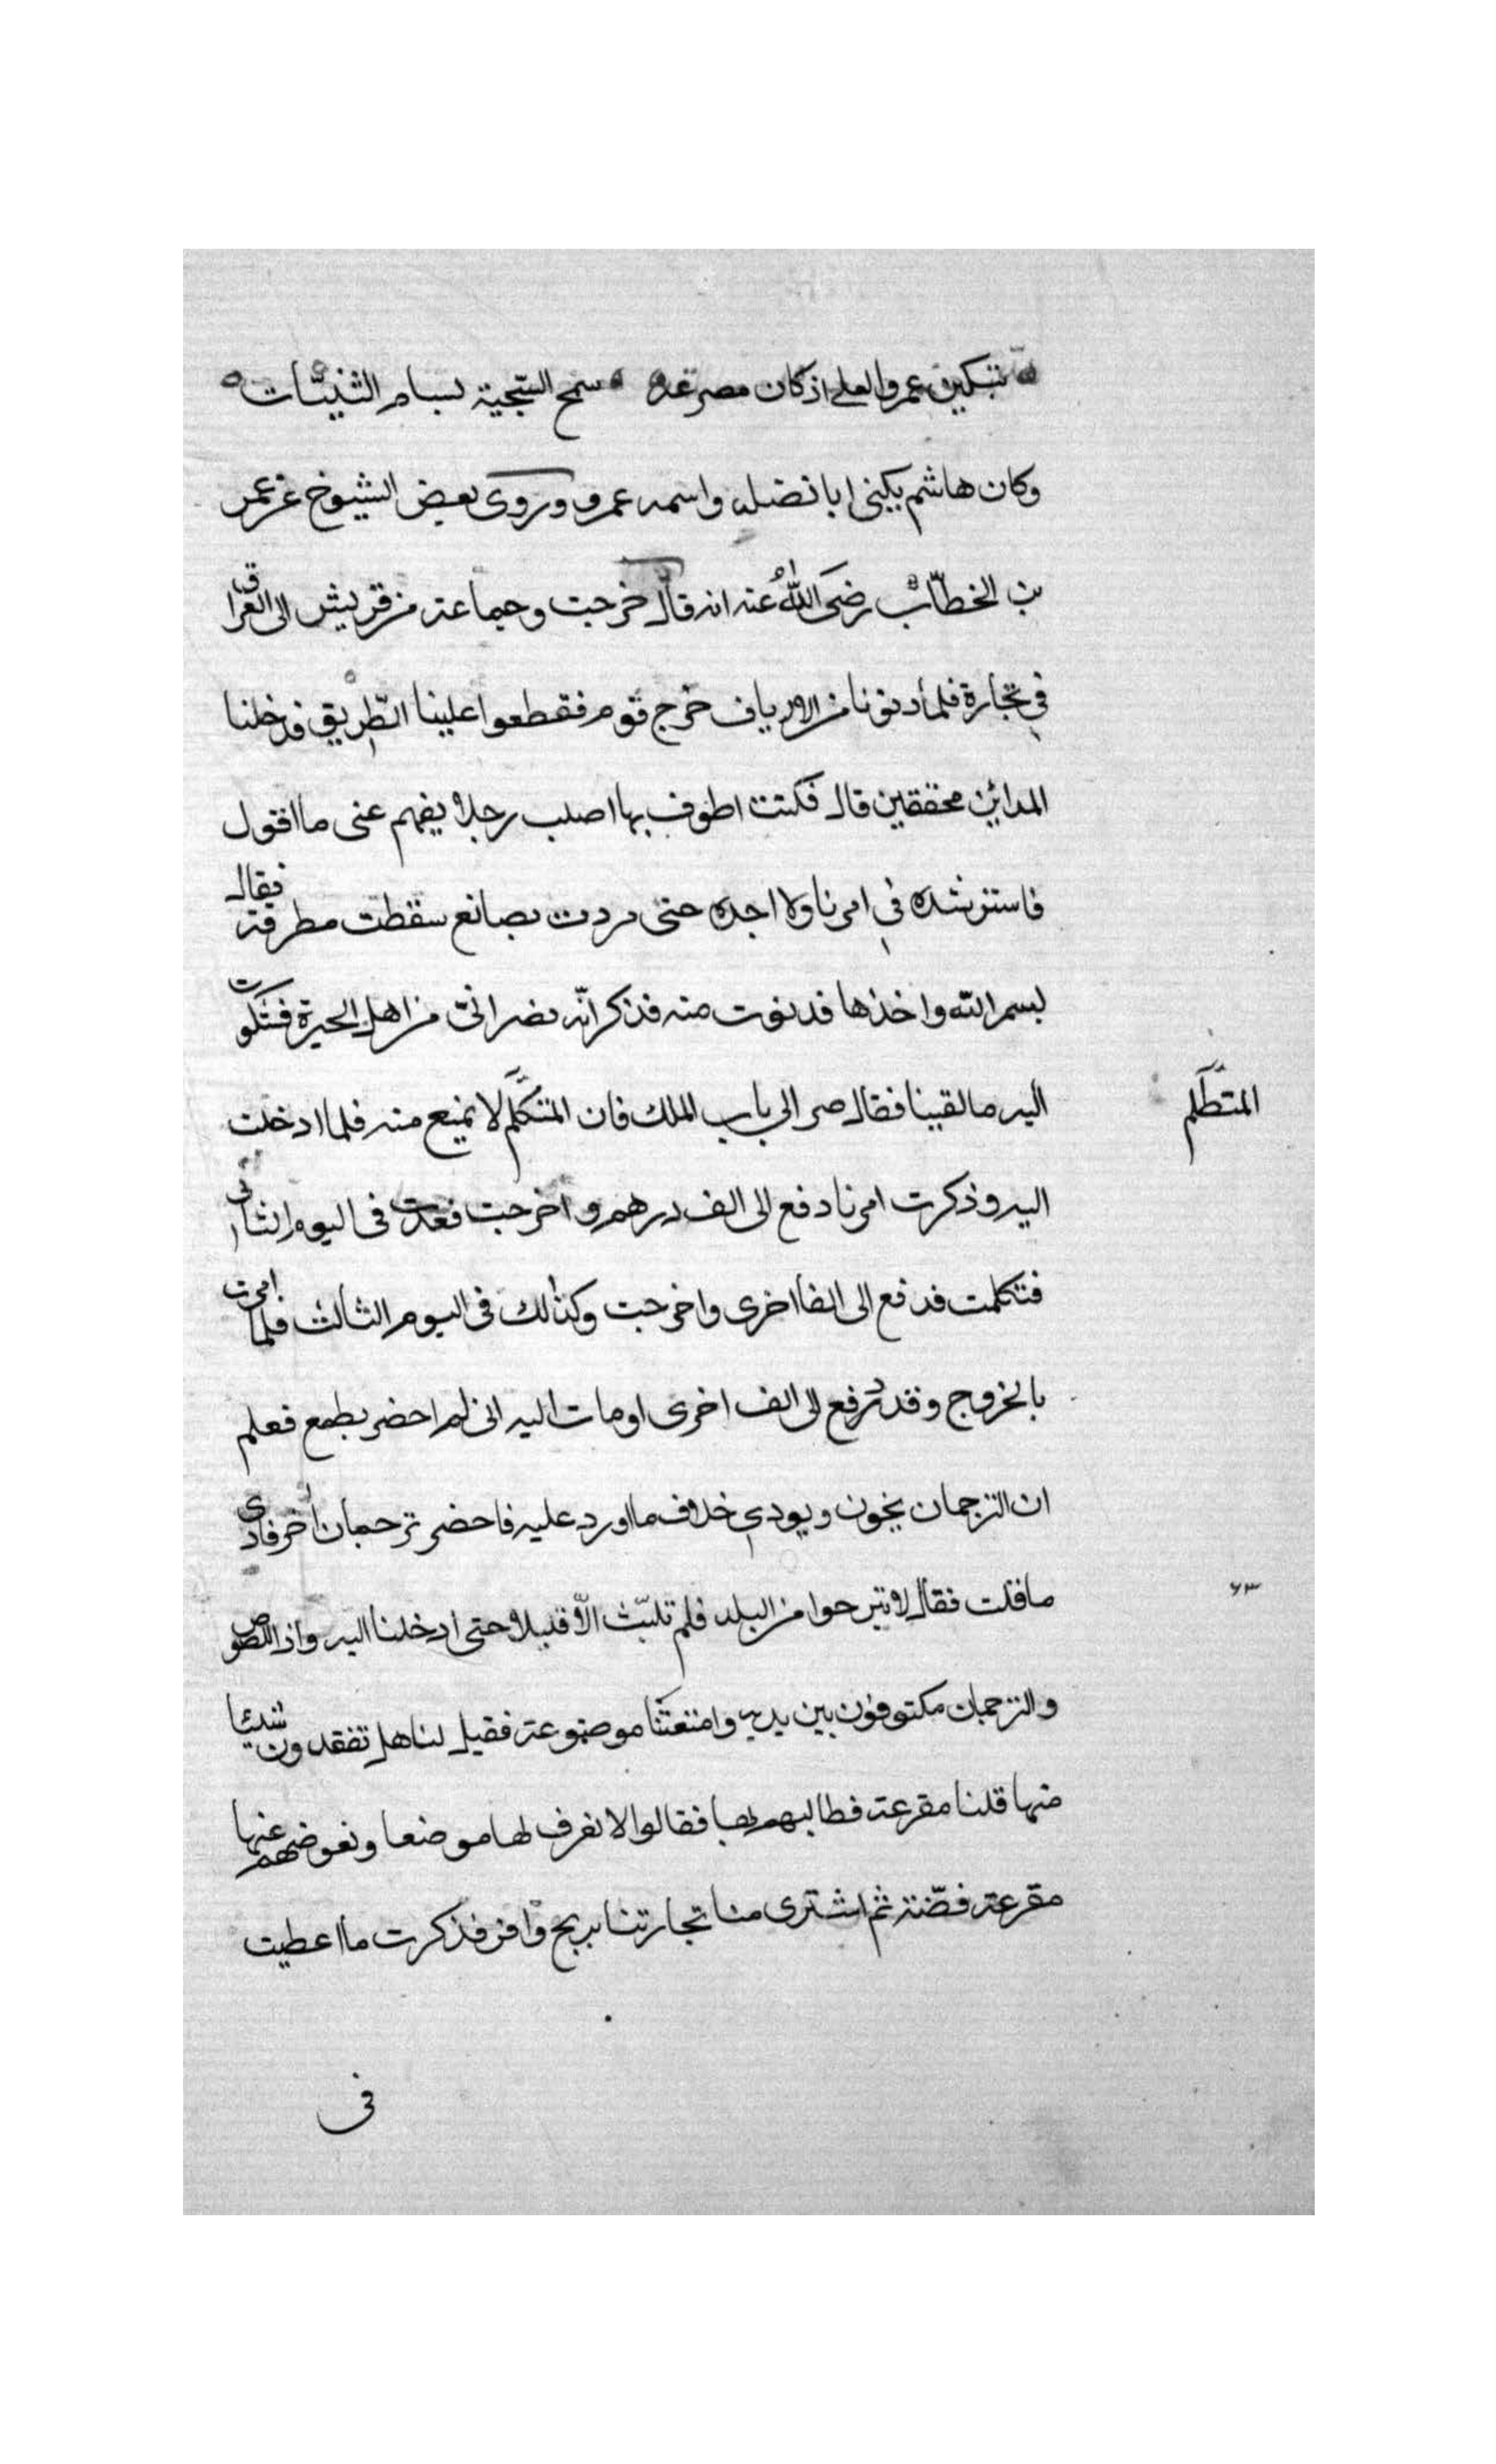 تبكين عمرو العلى اذ كان مصرعه سمح السجية بسام الثنيات
وكان هاشم يكنى ابا نضله واسمه عمرو وروى بعض الشيوخ عن عمر
بن الخطاب رضى الله عنه انه قال خرجت وجماعة من قريش الى العراق
فى تجارة فلما دنونا من الارياف خرج قوم فقطعوا علينا الطريق فدخلنا
المدائن محققين قال فكنت اطوف بها اصلب رجلا يفهم عنى ما اقول
فاسترشده فى امرنا ولا اجده حتى مررت بصانع سقطت مطرقته فقال
بسم الله واخذها فدنوت منه فذكر انه نصرانى من اهل الحيرة فشكوت
اليه ما لقينا فقال صر الى باب الملك فان المتكلم لا يمنع منه فلما ادخلت
المتظلم
اليه وذكرت امرنا دفع الى الف درهم واخرجت فعدت فى اليوم الثانى
فتكلمت فدفع الى الفا اخرى واخرجت وكذلك فى اليوم الثالث فلما امرت
بالخروج وقد دفع الى الف اخرى اومات اليه انى لم احضر بطمع فعلم
ان الترجمان يخون ويودى خلاف ما اورد عليه فاحضر ترجمان اخر فادى
ما قلت فقال لا تبرحوا من البلد فلم تلبث الا قليلا حتى ادخلنا اليه واذا اللصوص
٦٣
والترجمان مكتوفون بين يديه وامتعتنا موضوعة فقيل لنا هل تفقدون شيئا
منها قلنا مقرعة فطالبهم بها فقالوا لا نعرف لها موضعا ونعوضهم عنها
مقرعة فضة ثم اشترى منا تجارتنا بربح وافر فذكرت ما اعطيت
فى